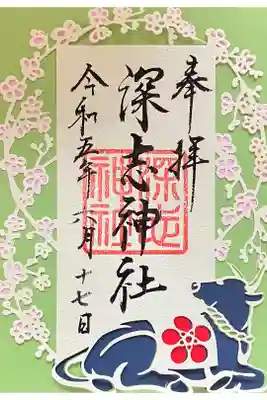 奉拝
深志神社
深志
神社
令和五年六月十七日